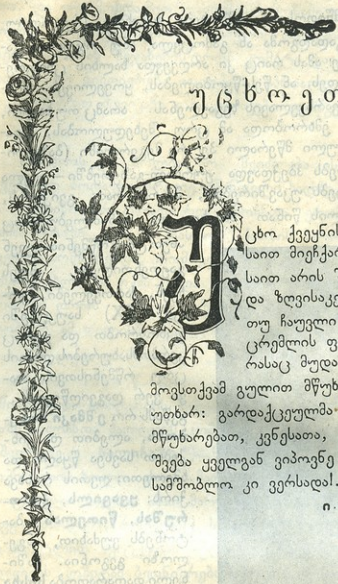 უცხოეთ
უცხო ქვეყნის
საით მიეჩქარ
საით არის
და ზღვისაკე
თუ ჩაუვლი
ცრემლის ფ
რასაც მუდა
მოვსთქვამ გულით მწუხ
უთხარ: გარდაქცეულმა
მწუხარებათ, კვნესათა,
შვება ყველგან ვიპოვნე
სამშობლო კი ვერსადა!.
ი.